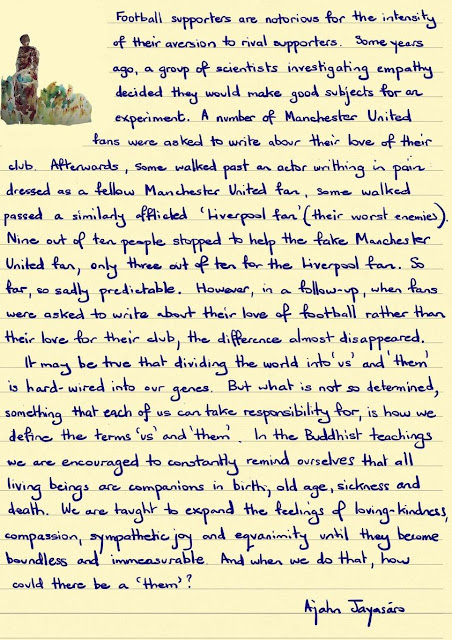 Football supporters are notorious for the intensity
of their aversion to rival supporters. Some years
ago, a group of scientists investigating empathy
decided they would make good subjects for an
experiment. A number of Manchester United
fans were asked to write about their love of their
club. Afterwards, some walked past an actor writhing in pain
dressed as a fellow Manchester United fan, some walked
passed a similarly afflicted 'Liverpool fan' (their worst enemies).
Nine out of ten people stopped to help the fake Manchester
United fan, only three out of ten for the Liverpool fan. So
far, so sadly predictable. However, in a follow-up, when fans
were asked to write about their love of football rather than
their love for their club, the difference almost disappeared.
It may be true that dividing the world into 'us' and 'them'
is hard-wired into our genes. But what is not so determined,
something that each of us can take responsibility for, is how we
define the terms 'us' and 'them'. In the Buddhist teachings
we are encouraged to constantly remind ourselves that all
living beings are companions in birth, old age, sickness and
death. We are taught to expand the feelings of loving-kindness,
compassion, sympathetic joy and equanimity until they become
boundless and immeasurable. And when we do that, how
could there be a 'them'?
Ajahn Jayasáro